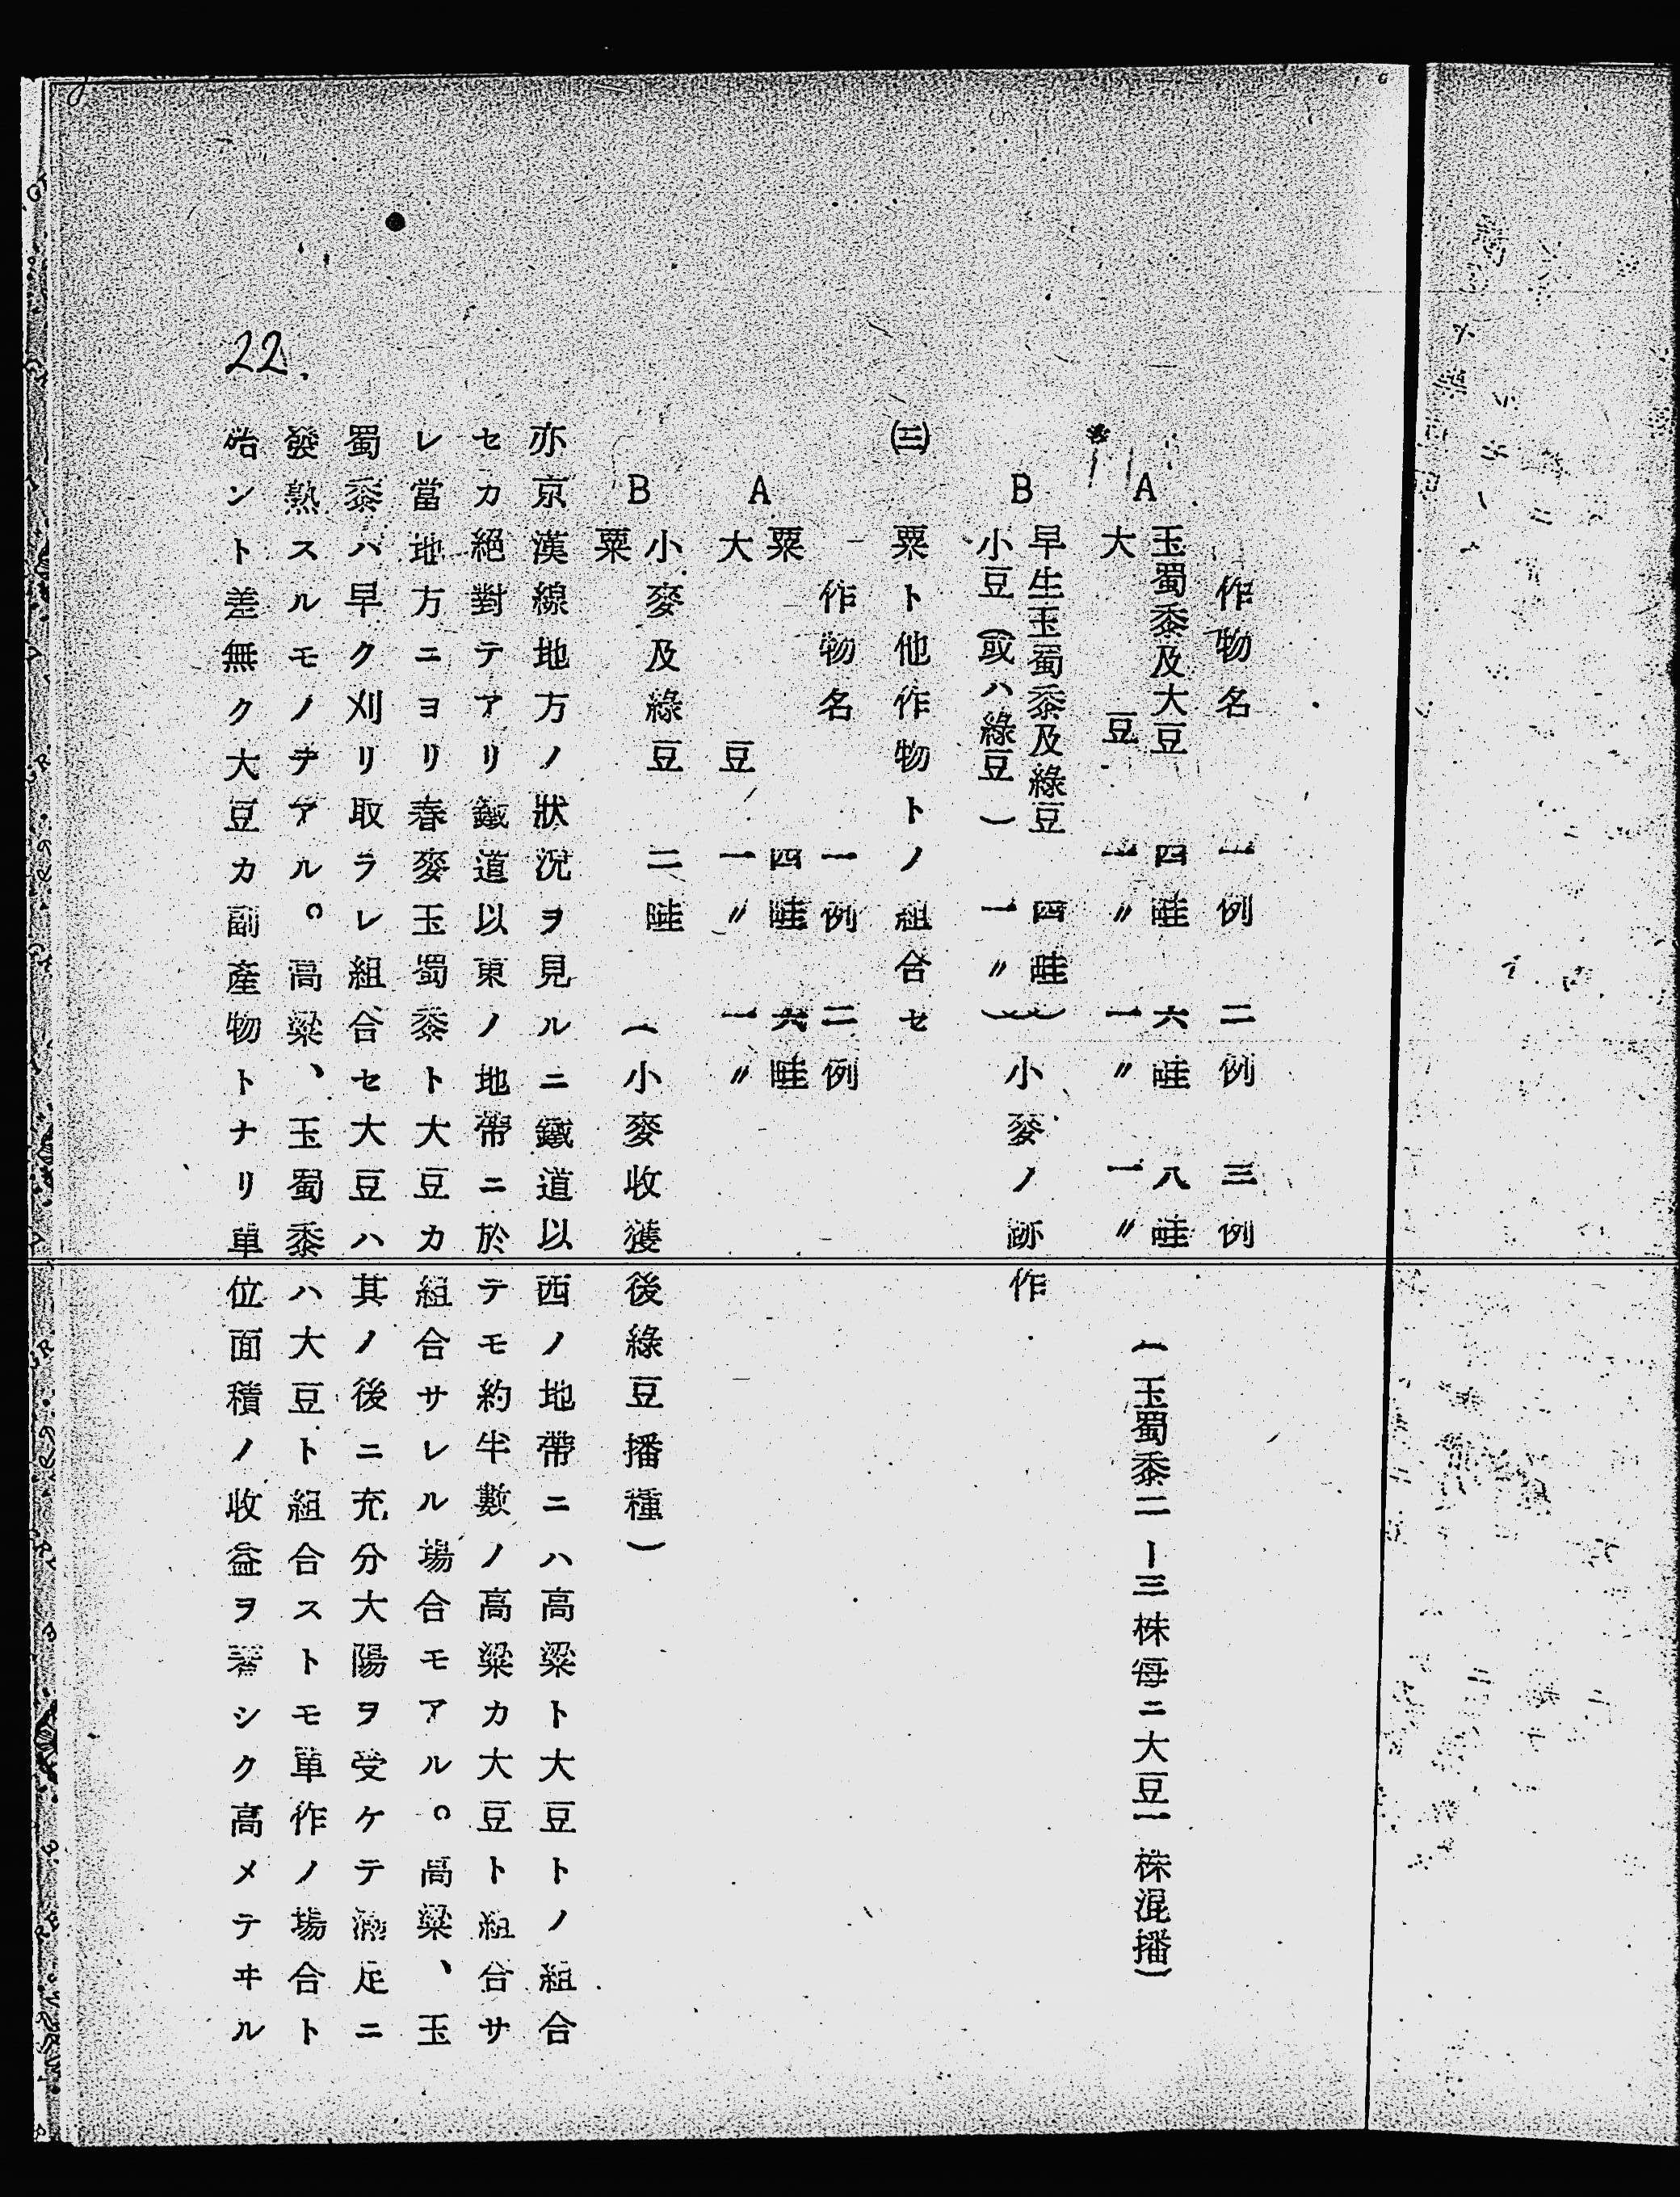 作物名 一例 二例 三例
A 玉蜀黍及大豆 四畦 六畦 八畦
大豆 一〃 一〃 一〃
(玉蜀黍二ー三株毎ニ大豆一株混播)
B 早生玉蜀黍及綠豆 四畦
小豆(或ハ綠豆) 一〃
小麥ノ跡作
㈢ 粟ト他作物トノ組合セ
作物名 一例 二例
A 粟 四畦 六畦
大豆 一〃 一〃
B 小麥及綠豆 二畦
粟
(小麥收獲後綠豆播種)
亦京漢線地方ノ狀況ヲ見ルニ鐵道以西ノ地帶ニハ高粱ト大豆トノ組合
セカ絕對テアリ鐵道以東ノ地帶ニ於テモ約半數ノ高粱カ大豆ト組合サ
レ當地方ニヨリ春麥玉蜀黍ト大豆カ組合サレル場合モアル。高粱、玉
蜀黍ハ早ク刈リ取ラレ組合セ大豆ハ其ノ後ニ充分大陽ヲ受ケテ滿足ニ
發熟スルモノテアル。高粱、玉蜀黍ハ大豆ト組合ストモ單作ノ場合ト
殆ント差無ク大豆カ副產物トナリ單位面積ノ收益ヲ著シク高メテヰル
22.